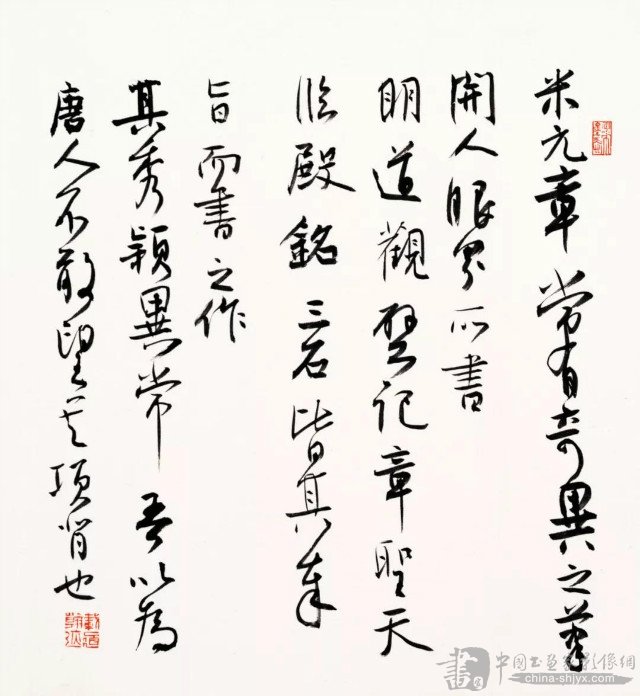 米元章常有奇異之筆
開人眼界所書
明道觀壁記章聖天
臨殿銘三石皆真奉
旨而書之作
其秀穎異常吾以為
唐人不敢望其項背也
書
中國书画家影像網
china-shjyx.com